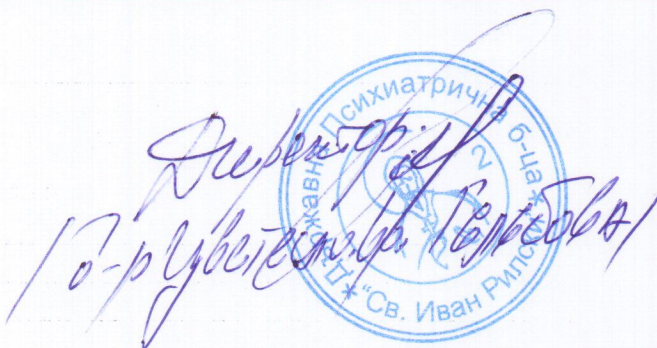 Директор:
/д-р Цветеслава Гълъбова/
Държавна Психиатрична б-ца * "Св. Иван Рилски" *
2